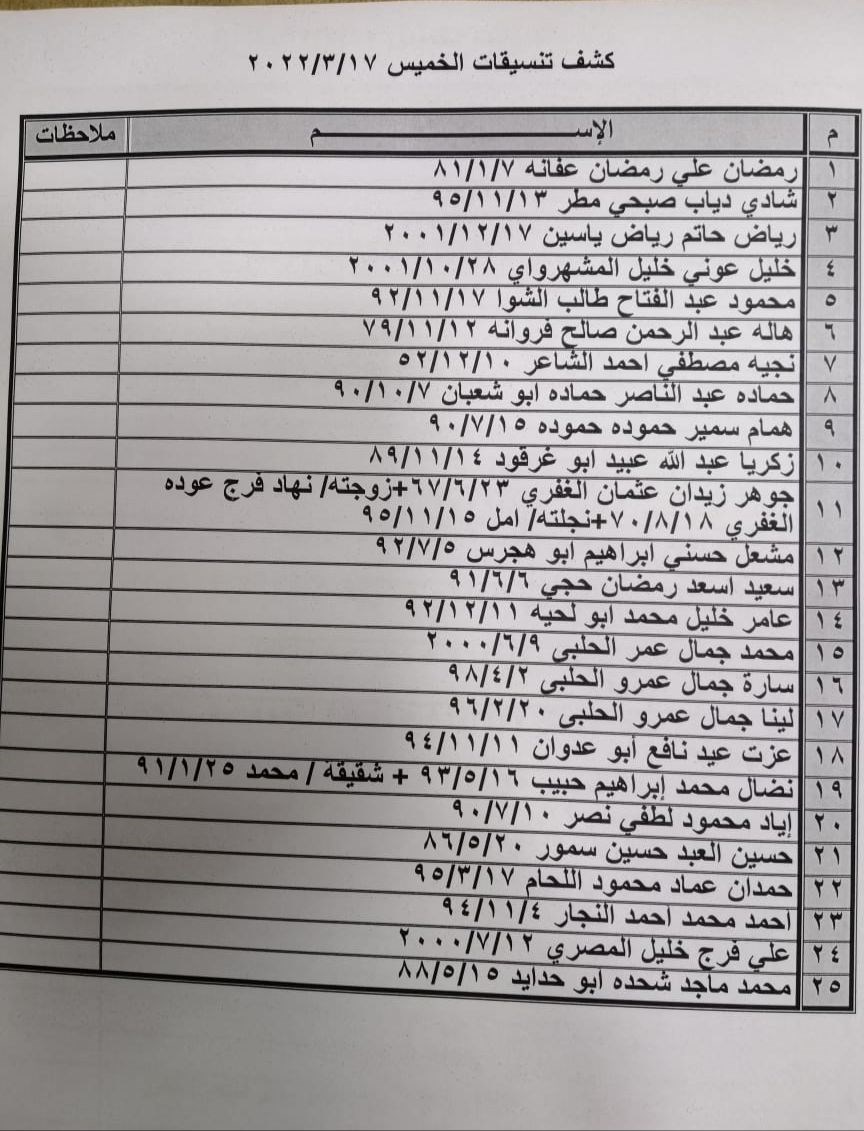 كشف تنسيقات الخميس ٢٠٢٢/٣/١٧
م الإســـــم ملاحظات
١ رمضان علي رمضان عفانه ٨١/١/٧
٢ شادي دياب صبحي مطر ٩٥/١١/١٣
٣ رياض حاتم رياض ياسين ٢٠٠١/١٢/١٧
٤ خليل عوني خليل المشهرواي ٢٠٠١/١٠/٢٨
٥ محمود عبد الفتاح طالب الشوا ٩٢/١١/١٧
٦ هاله عبد الرحمن صالح فروانه ٧٩/١١/١٢
٧ نجيه مصطفي احمد الشاعر ٥٢/١٢/١٠
٨ حماده عبد الناصر حماده ابو شعبان ٩٠/١٠/٧
٩ همام سمير حموده حموده ٩٠/٧/١٥
١٠ زكريا عبد الله عبيد ابو غرقود ٨٩/١١/١٤
١١ جوهر زيدان عثمان الغفري ٦٧/٦/٢٣+زوجته/ نهاد فرج عوده
الغفري ٧٠/٨/١٨+نجلته/ امل ٩٥/١١/١٥
١٢ مشعل حسني ابراهيم ابو هجرس ٩٢/٧/٥
١٣ سعيد اسعد رمضان حجي ٩١/٦/٦
١٤ عامر خليل محمد ابو لحيه ٩٢/١٢/١١
١٥ محمد جمال عمر الحلبي ٢٠٠٠/٦/٩
١٦ سارة جمال عمرو الحلبي ٩٨/٤/٢
١٧ لينا جمال عمرو الحلبي ٩٦/٢/٢٠
١٨ عزت عيد نافع أبو عدوان ٩٤/١١/١١
١٩ نضال محمد إبراهيم حبيب ٩٣/٥/١٦ + شقيقة / محمد ٩١/١/٢٥
٢٠ إياد محمود لطفي نصر ٩٠/٧/١٠
٢١ حسين العبد حسين سمور ٨٦/٥/٢٠
٢٢ حمدان عماد محمود اللحام ٩٥/٣/١٧
٢٣ احمد محمد احمد النجار ٩٤/١١/٤
٢٤ علي فرج خليل المصري ٢٠٠٠/٧/١٢
٢٥ محمد ماجد شحده ابو حدايد ٨٨/٥/١٥